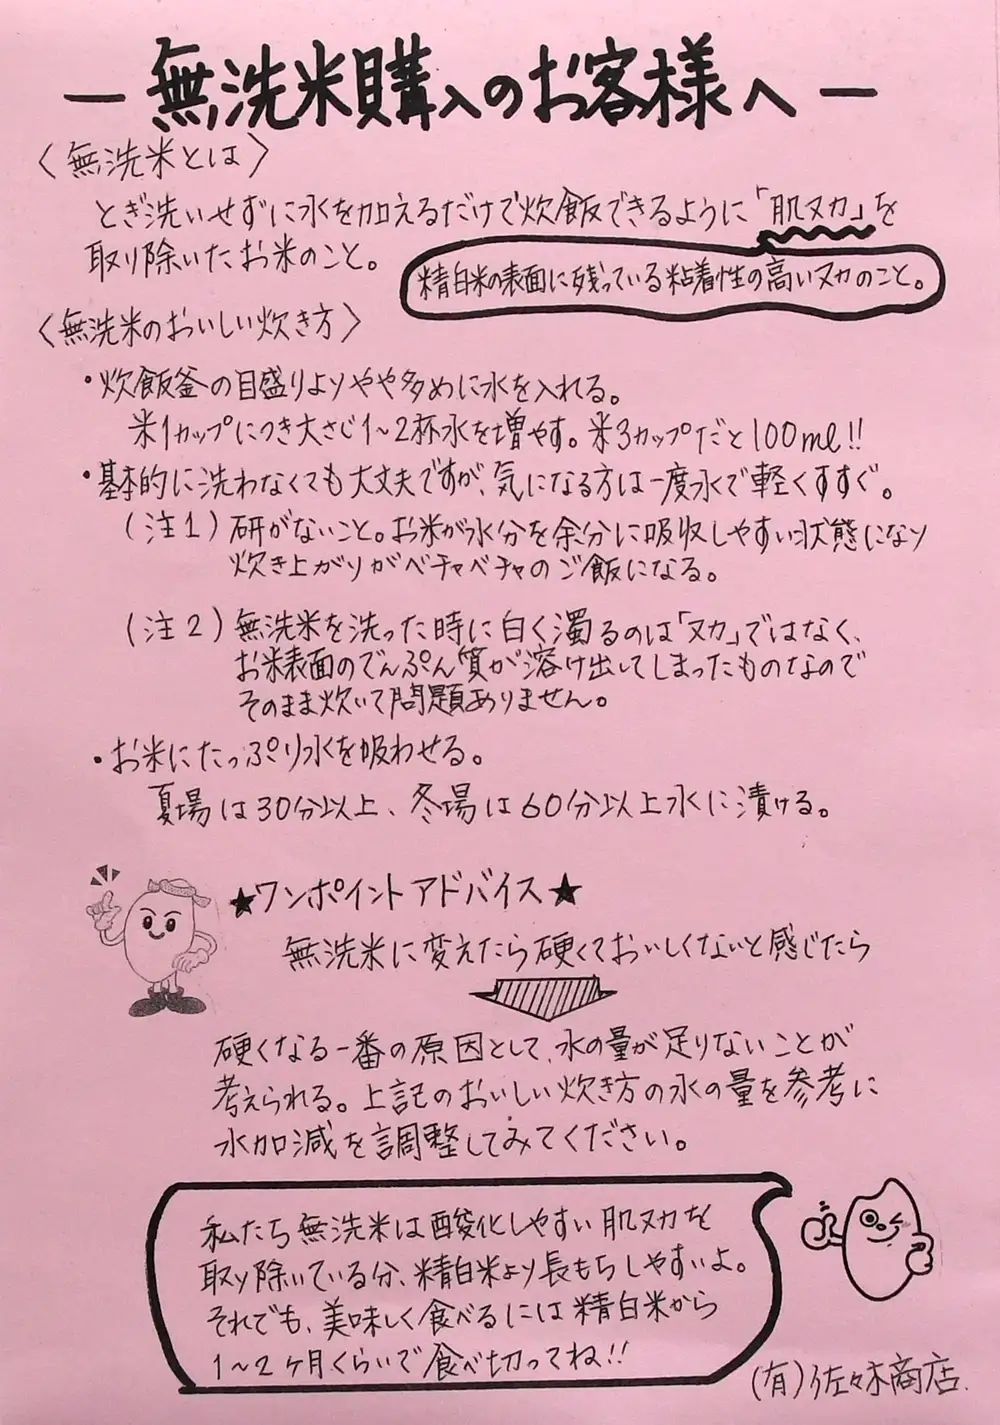 －無洗米購入のお客様へ－
〈無洗米とは〉
とぎ洗いせずに水を加えるだけで炊飯できるように「肌ヌカ」を
取り除いたお米のこと。
精白米の表面に残っている粘着性の高いヌカのこと。
〈無洗米のおいしい炊き方〉
・炊飯釜の目盛りよりやや多めに水を入れる。
米1カップにつき大さじ1～2杯水を増やす。米3カップだと100ml!!
・基本的に洗わなくても大丈夫ですが、気になる方は一度水で軽くすすぐ。
(注1)研がないこと。お米が水分を余分に吸収しやすい状態になり
炊き上がりがベチャベチャのご飯になる。
(注2)無洗米を洗った時に白く濁るのは「ヌカ」ではなく、
お米表面のでんぷん質が溶け出してしまったものなので
そのまま炊いて問題ありません。
・お米にたっぷり水を吸わせる。
夏場は30分以上、冬場は60分以上水に漬ける。
★ワンポイントアドバイス★
無洗米に変えたら硬くておいしくないと感じたら
硬くなる一番の原因として、水の量が足りないことが
考えられる。上記のおいしい炊き方の水の量を参考に
水加減を調整してみてください。
私たち無洗米は酸化しやすい肌ヌカを
取り除いている分、精白米より長もちしやすいよ。
それでも、美味しく食べるには精白米から
1～2ヶ月くらいで食べ切ってね!!
(有)佐々木商店.